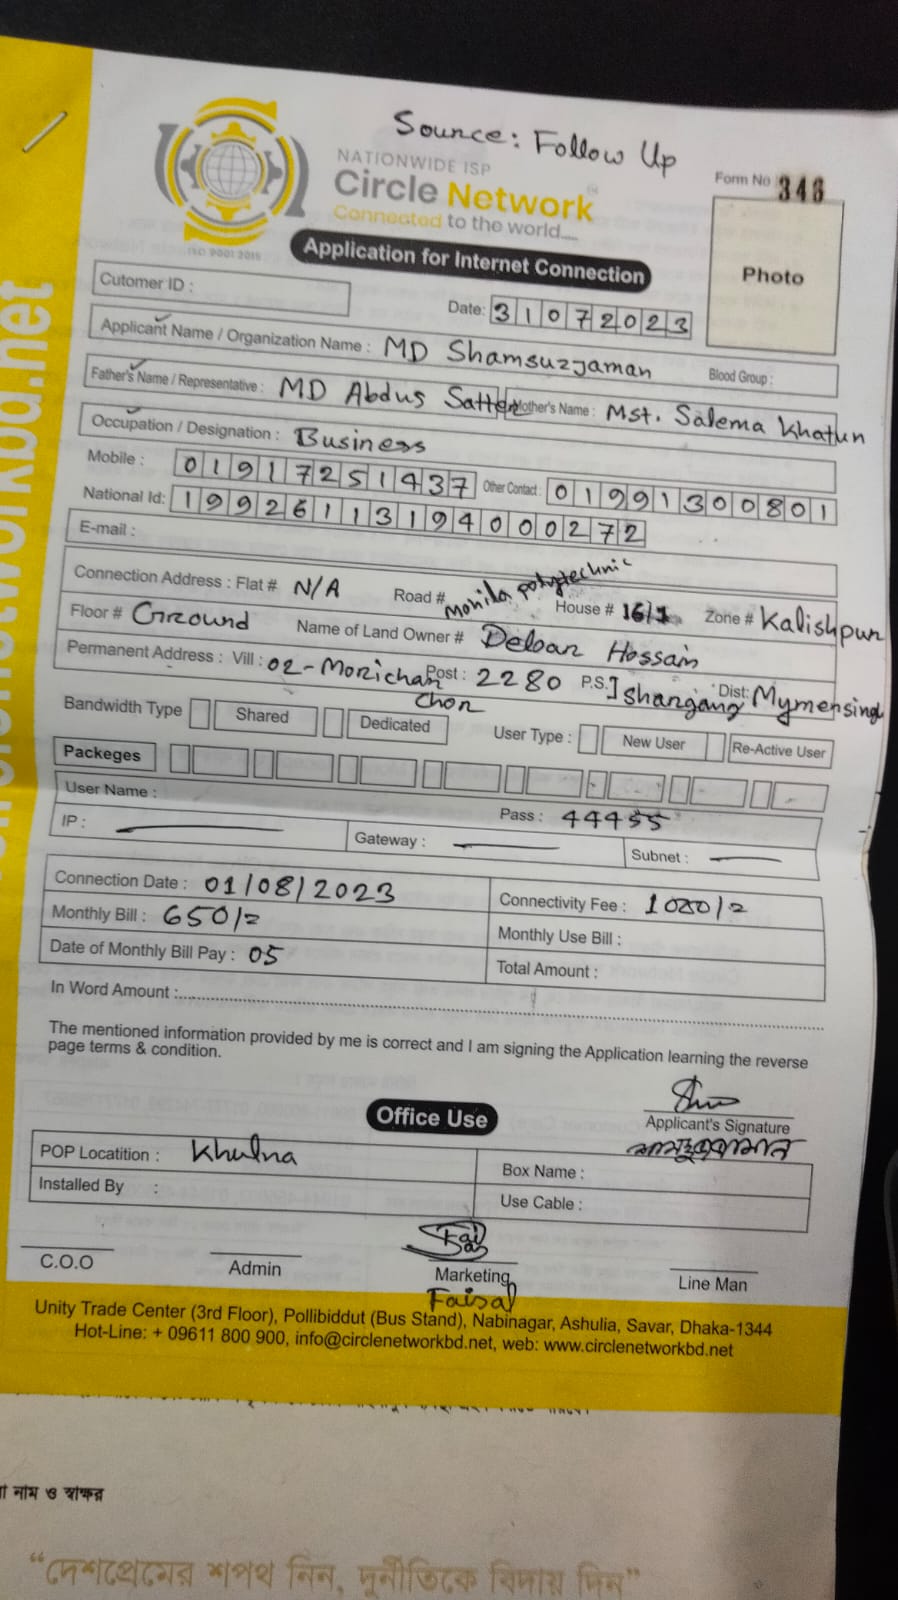 Source: Follow Up
NATIONWIDE ISP
Circle Network
Connected to the world....
ISO 9001:2015
Form No 346
Application for Internet Connection
Photo
Cutomer ID :
Date: 31072023
Applicant Name / Organization Name : MD Shamsuzjaman
Blood Group :
Father's Name / Representative : MD Abdus Satter Mother's Name : Mst. Salema Khatun
Occupation / Designation : Business
Mobile : 01917251437 Other Contact : 01991300801
National Id: 19926113194000272
E-mail :
Connection Address : Flat # N/A Road # Mohila polytechnic House # 16/1 Zone # Kalishpur
Floor # Ground Name of Land Owner # Deloar Hossain
Permanent Address : Vill : 02-Morichar Chor Post : 2280 P.S. Ishargang Dist: Mymensing
Bandwidth Type Shared Dedicated User Type : New User Re-Active User
Packeges
User Name : Pass : 44455
IP : Gateway : Subnet :
Connection Date : 01/08/2023 Connectivity Fee : 1000/=
Monthly Bill : 650/= Monthly Use Bill :
Date of Monthly Bill Pay : 05 Total Amount :
In Word Amount :
The mentioned information provided by me is correct and I am signing the Application learning the reverse
page terms & condition.
Applicant's Signature
Office Use
POP Locatition : Khulna Box Name :
Installed By : Use Cable :
C.O.O Admin Marketing Line Man
Faisal
Unity Trade Center (3rd Floor), Pollibiddut (Bus Stand), Nabinagar, Ashulia, Savar, Dhaka-1344
Hot-Line: + 09611 800 900, info@circlenetworkbd.net, web: www.circlenetworkbd.net
নাম ও স্বাক্ষর
“দেশপ্রেমের শপথ নিন, দুর্নীতিকে বিদায় দিন”